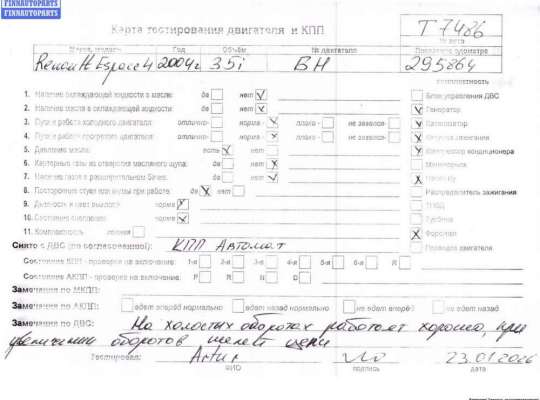 FINNAUTOPARTS
FINNAUTOPARTS
Карта тестирования двигателя и КПП
T 7486
№ авто
Марка, модель Год Объём № двигателя Показание одометра
Renault Espace 4 2004г 3.5i BH 295864
комплектность
1. Наличие охлаждающей жидкости в масле: да нет V Блок управления ДВС
2. Наличие масла в охлаждающей жидкости: да нет V Генератор
3. Пуск и работа холодного двигателя: отлично- норма - плохо - не завелся-
4. Пуск и работа прогретого двигателя: отлично- норма - плохо - не завелся-
5. Давление масла: есть нет кондиционера
6. Картерные газы из отверстия масляного щупа: да нет
7. Наличие газов в расширительном бачке: да нет
8. Посторонние стуки или шумы при работе: да нет Распределитель зажигания
9. Дымность и цвет выхлопа: норма ТНВД
10. Состояние сцепления: норма Турбина
11. Комплектность: полная Форсунки
Снято с ДВС (по согласованию): КПП Автомат Проводка двигателя
Состояние КПП - проверка на включение: 1-я 2-я 3-я 4-я 5-я 6-я R
Состояние АКПП - проверка на включение: P R N D
Замечания по МКПП:
Замечания по АКПП: едет вперёд нормально едет назад нормально не едет вперёд не едет назад
Замечания по ДВС: На холостых оборотах работает хорошо, при
увеличении оборотов шелест цепи
Тестировал: Artur 23.01.2026
ФИО подпись дата